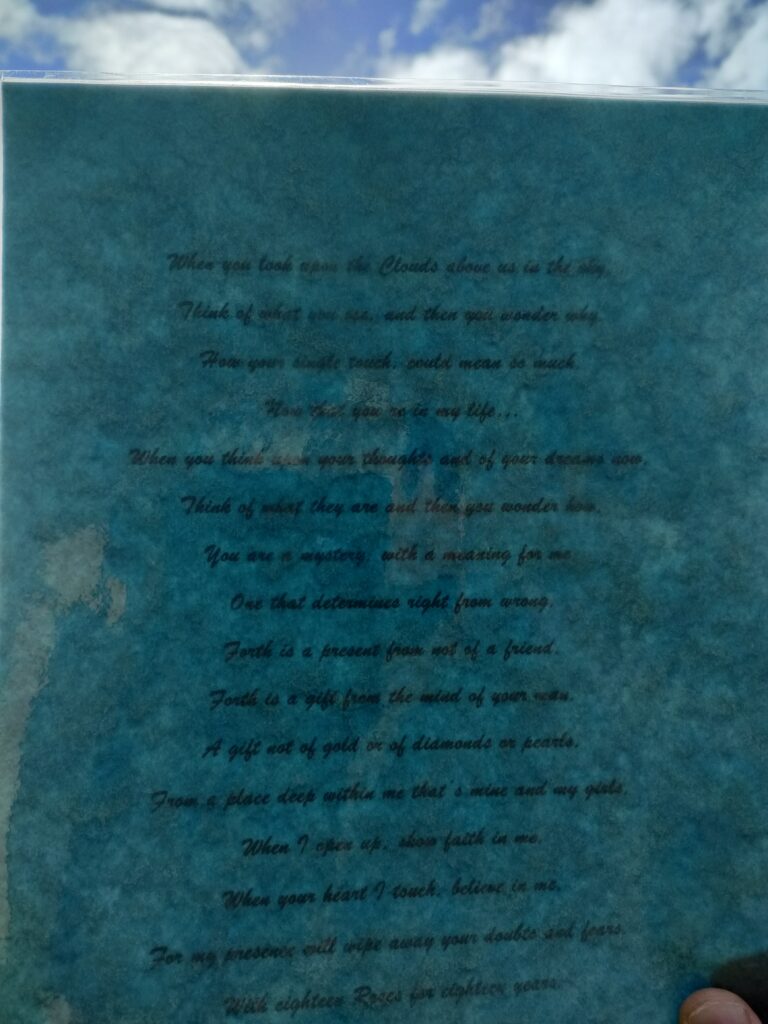 When you look upon the Clouds above us in the sky,
Think of what you see, and then you wonder why.
How your single touch, could mean so much,
Now that you're in my life...
When you think upon your thoughts and of your dreams now,
Think of what they are and then you wonder how,
You are a mystery, with a meaning for me,
One that determines right from wrong,
Forth is a present from not of a friend,
Forth is a gift from the mind of your man,
A gift not of gold or of diamonds or pearls,
From a place deep within me that's mine and my girls,
When I open up, show faith in me,
When your heart I touch, believe in me,
For my presence will wipe away your doubts and fears,
With eighteen Roses for eighteen years.